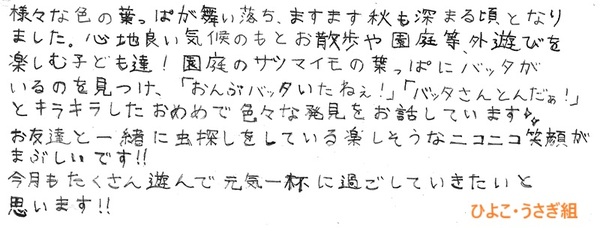 様々な色の葉っぱが舞い落ち、ますます秋も深まる頃となり
ました。心地良い気候のもとお散歩や園庭等、外遊びを
楽しむ子ども達！園庭のサツマイモの葉っぱにバッタが
いるのを見つけ、「おんぶバッタいたねぇ！」「バッタさんとんだぁ！」
とキラキラしたおめめで色々な発見をお話しています✨
お友達と一緒に虫探しをしている楽しそうなニコニコ笑顔が
まぶしいです!!
今月もたくさん遊んで元気一杯に過ごしていきたいと
思います!!
ひよこ・うさぎ組